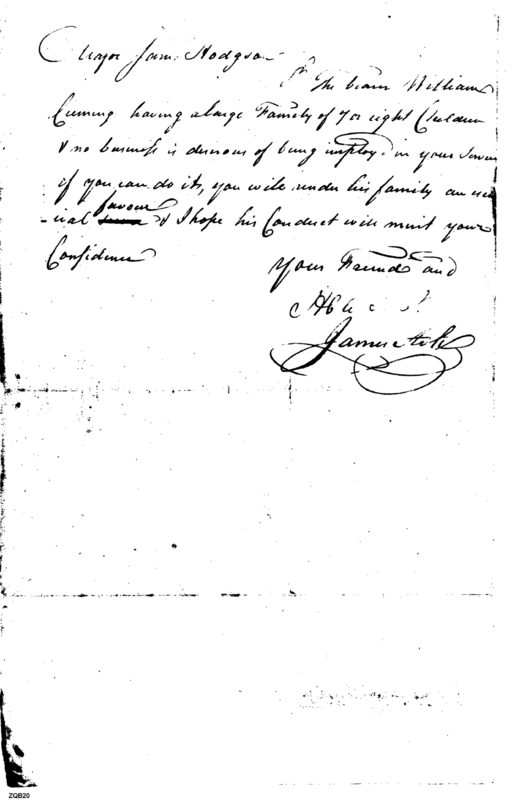 Major Jam. Hodgson
Sr. The bearer William
Cuming having a large Family of 7 or eight Children
& no business is desirous of being imploy'd in your Service
if you can do it, you will render his family an essen
-tial favour & I hope his Conduct will merit your
Confidence
Your Friend and
James
ZQB20